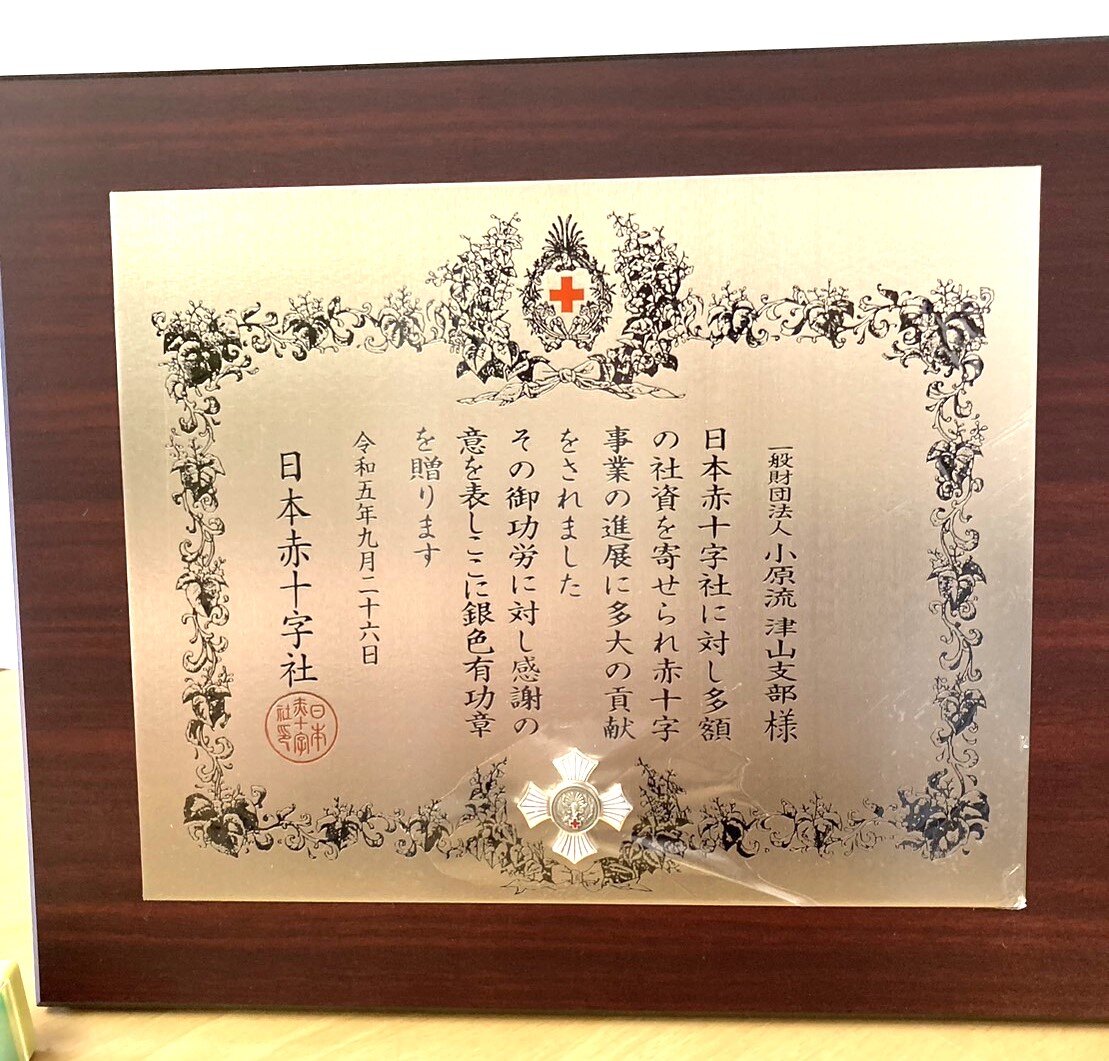 一般財団法人 小原流 津山支部 様
日本赤十字社に対し多額
の社資を寄せられ赤十字
事業の進展に多大の貢献
をされました
その御功労に対し感謝の
意を表しここに銀色有功章
を贈ります
令和五年九月二十六日
日本赤十字社
日本
赤十字
社印